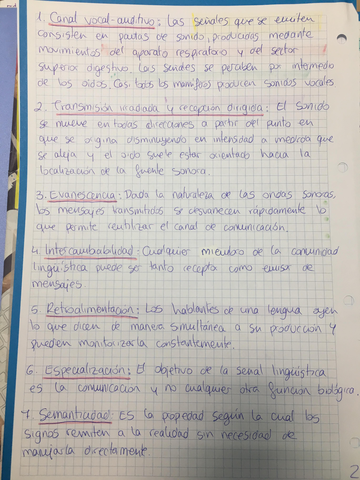 1. Canal vocal-auditivo: Las señales que se emiten
consisten en pautas de sonido, producidas mediante
movimientos del aparato respiratorio y del sector
superior digestivo. Las señales se perciben por intermedio
de los oídos. Casi todos los mamíferos producen sonidos vocales
2. Transmisión irradiada y recepción dirigida: El sonido
se mueve en todas direcciones a partir del punto en
que se origina disminuyendo en intensidad a medida que
se aleja y el oido suele estar orientado hacia la
localización de la fuente sonora.
3. Evanescencia: Dada la naturaleza de las ondas sonoras,
los mensajes transmitidos se desvanecen rápidamente lo
que permite reutilizar el canal de comunicación.
4. Intercambiabilidad: Cualquier miembro de la comunidad
lingüística puede ser tanto receptor como emisor de
mensajes.
5. Retroalimentacion: Los hablantes de una lengua oyen
lo que dicen de manera simultánea a su producción y
pueden monitorizarla constantemente.
6. Especialización: El objetivo de la señal lingüística
es la comunicación y no cualquier otra función biológica.
7. Semanticidad: Es la popedad según la cual los
signos remiten a la realidad sin necesidad de
manejarla directamente.
2